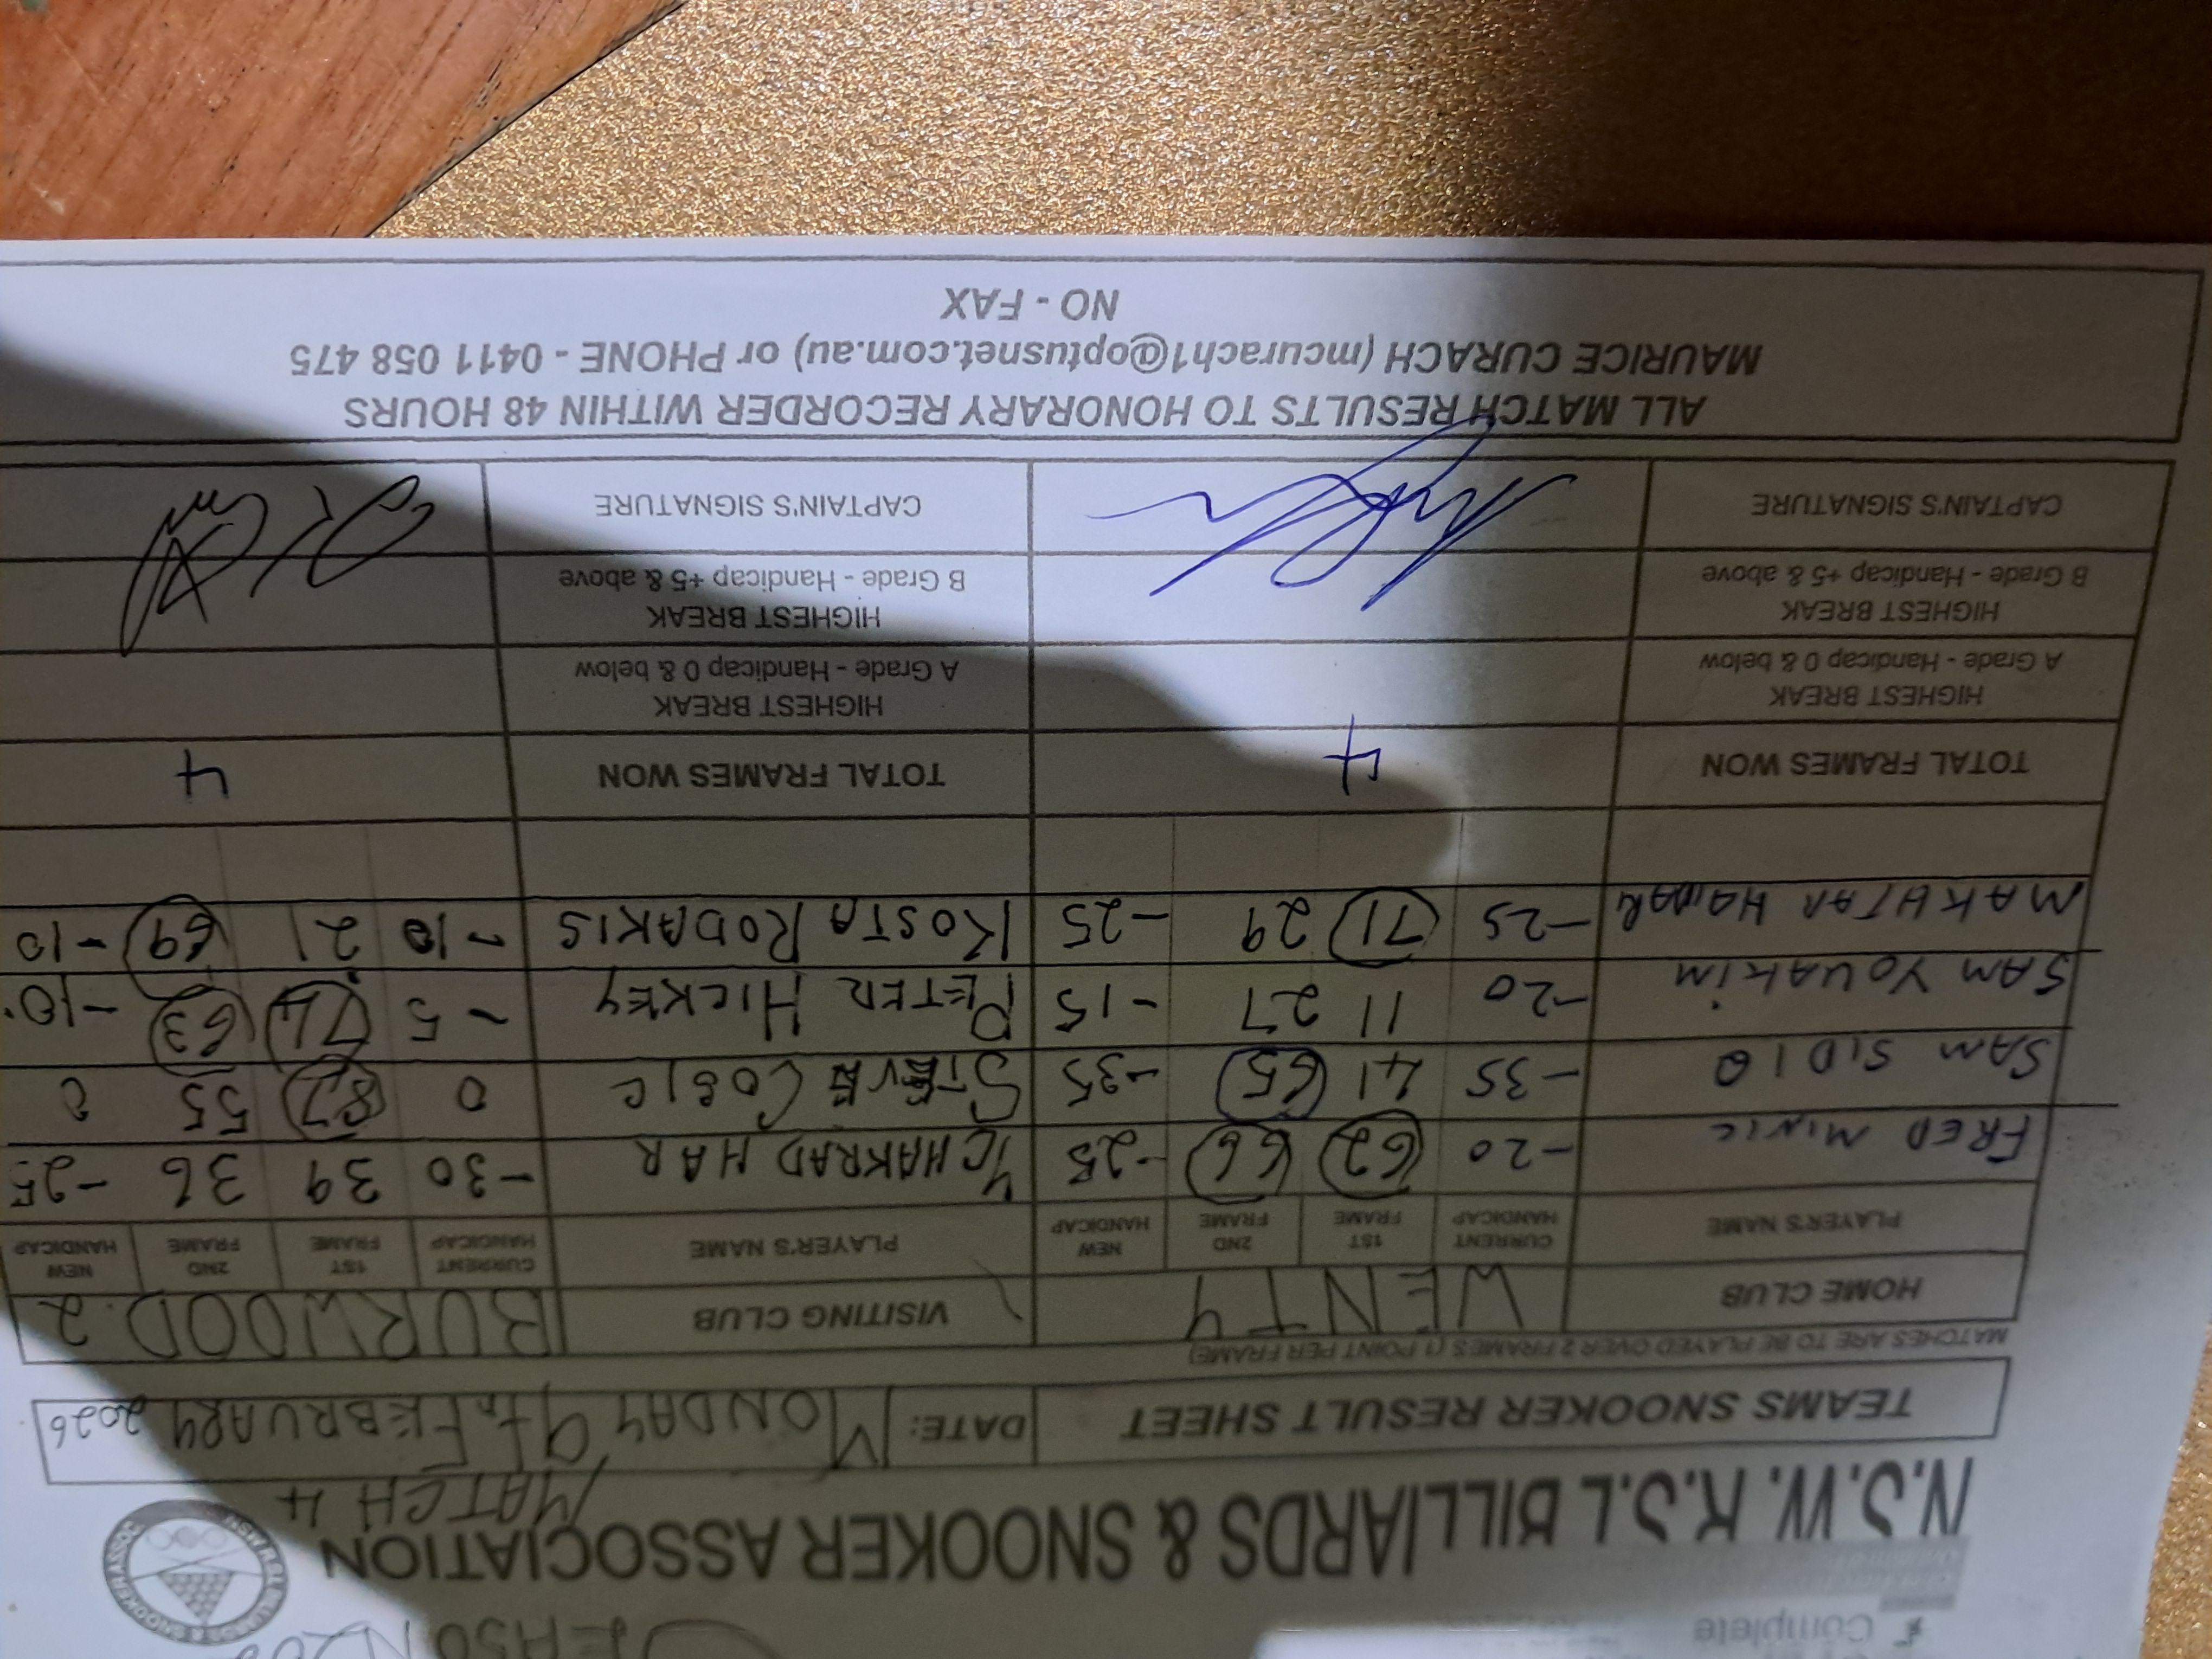 SEASON 20
N.S.W. R.S.L BILLIARDS & SNOOKER ASSOCIATION
MATCH 4
TEAMS SNOOKER RESULT SHEET DATE: MONDAY 9th FEBRUARY 2026
MATCHES ARE TO BE PLAYED OVER 2 FRAMES (1 POINT PER FRAME)
HOME CLUB WENTY VISITING CLUB BURWOOD 2
PLAYER'S NAME CURRENT HANDICAP 1ST FRAME 2ND FRAME NEW HANDICAP PLAYER'S NAME CURRENT HANDICAP 1ST FRAME 2ND FRAME NEW HANDICAP
FRED MINIC -20 62 66 -25 YCHAKRAD HAR -30 39 36 -25
SAM SIDIQ -35 41 65 -35 STEVE COSIC 0 87 55 0
SAM YOUAKIM -20 11 27 -15 PETER HICKEY -5 74 63 -10
MAKHTAR HAIDARI -25 71 29 -25 KOSTA RODAKIS -10 21 69 -10
TOTAL FRAMES WON 4 TOTAL FRAMES WON 4
HIGHEST BREAK HIGHEST BREAK
A Grade - Handicap 0 & below A Grade - Handicap 0 & below
HIGHEST BREAK HIGHEST BREAK
B Grade - Handicap +5 & above B Grade - Handicap +5 & above
CAPTAIN'S SIGNATURE CAPTAIN'S SIGNATURE
ALL MATCH RESULTS TO HONORARY RECORDER WITHIN 48 HOURS
MAURICE CURACH (mcurach1@optusnet.com.au) or PHONE - 0411 058 475
NO - FAX